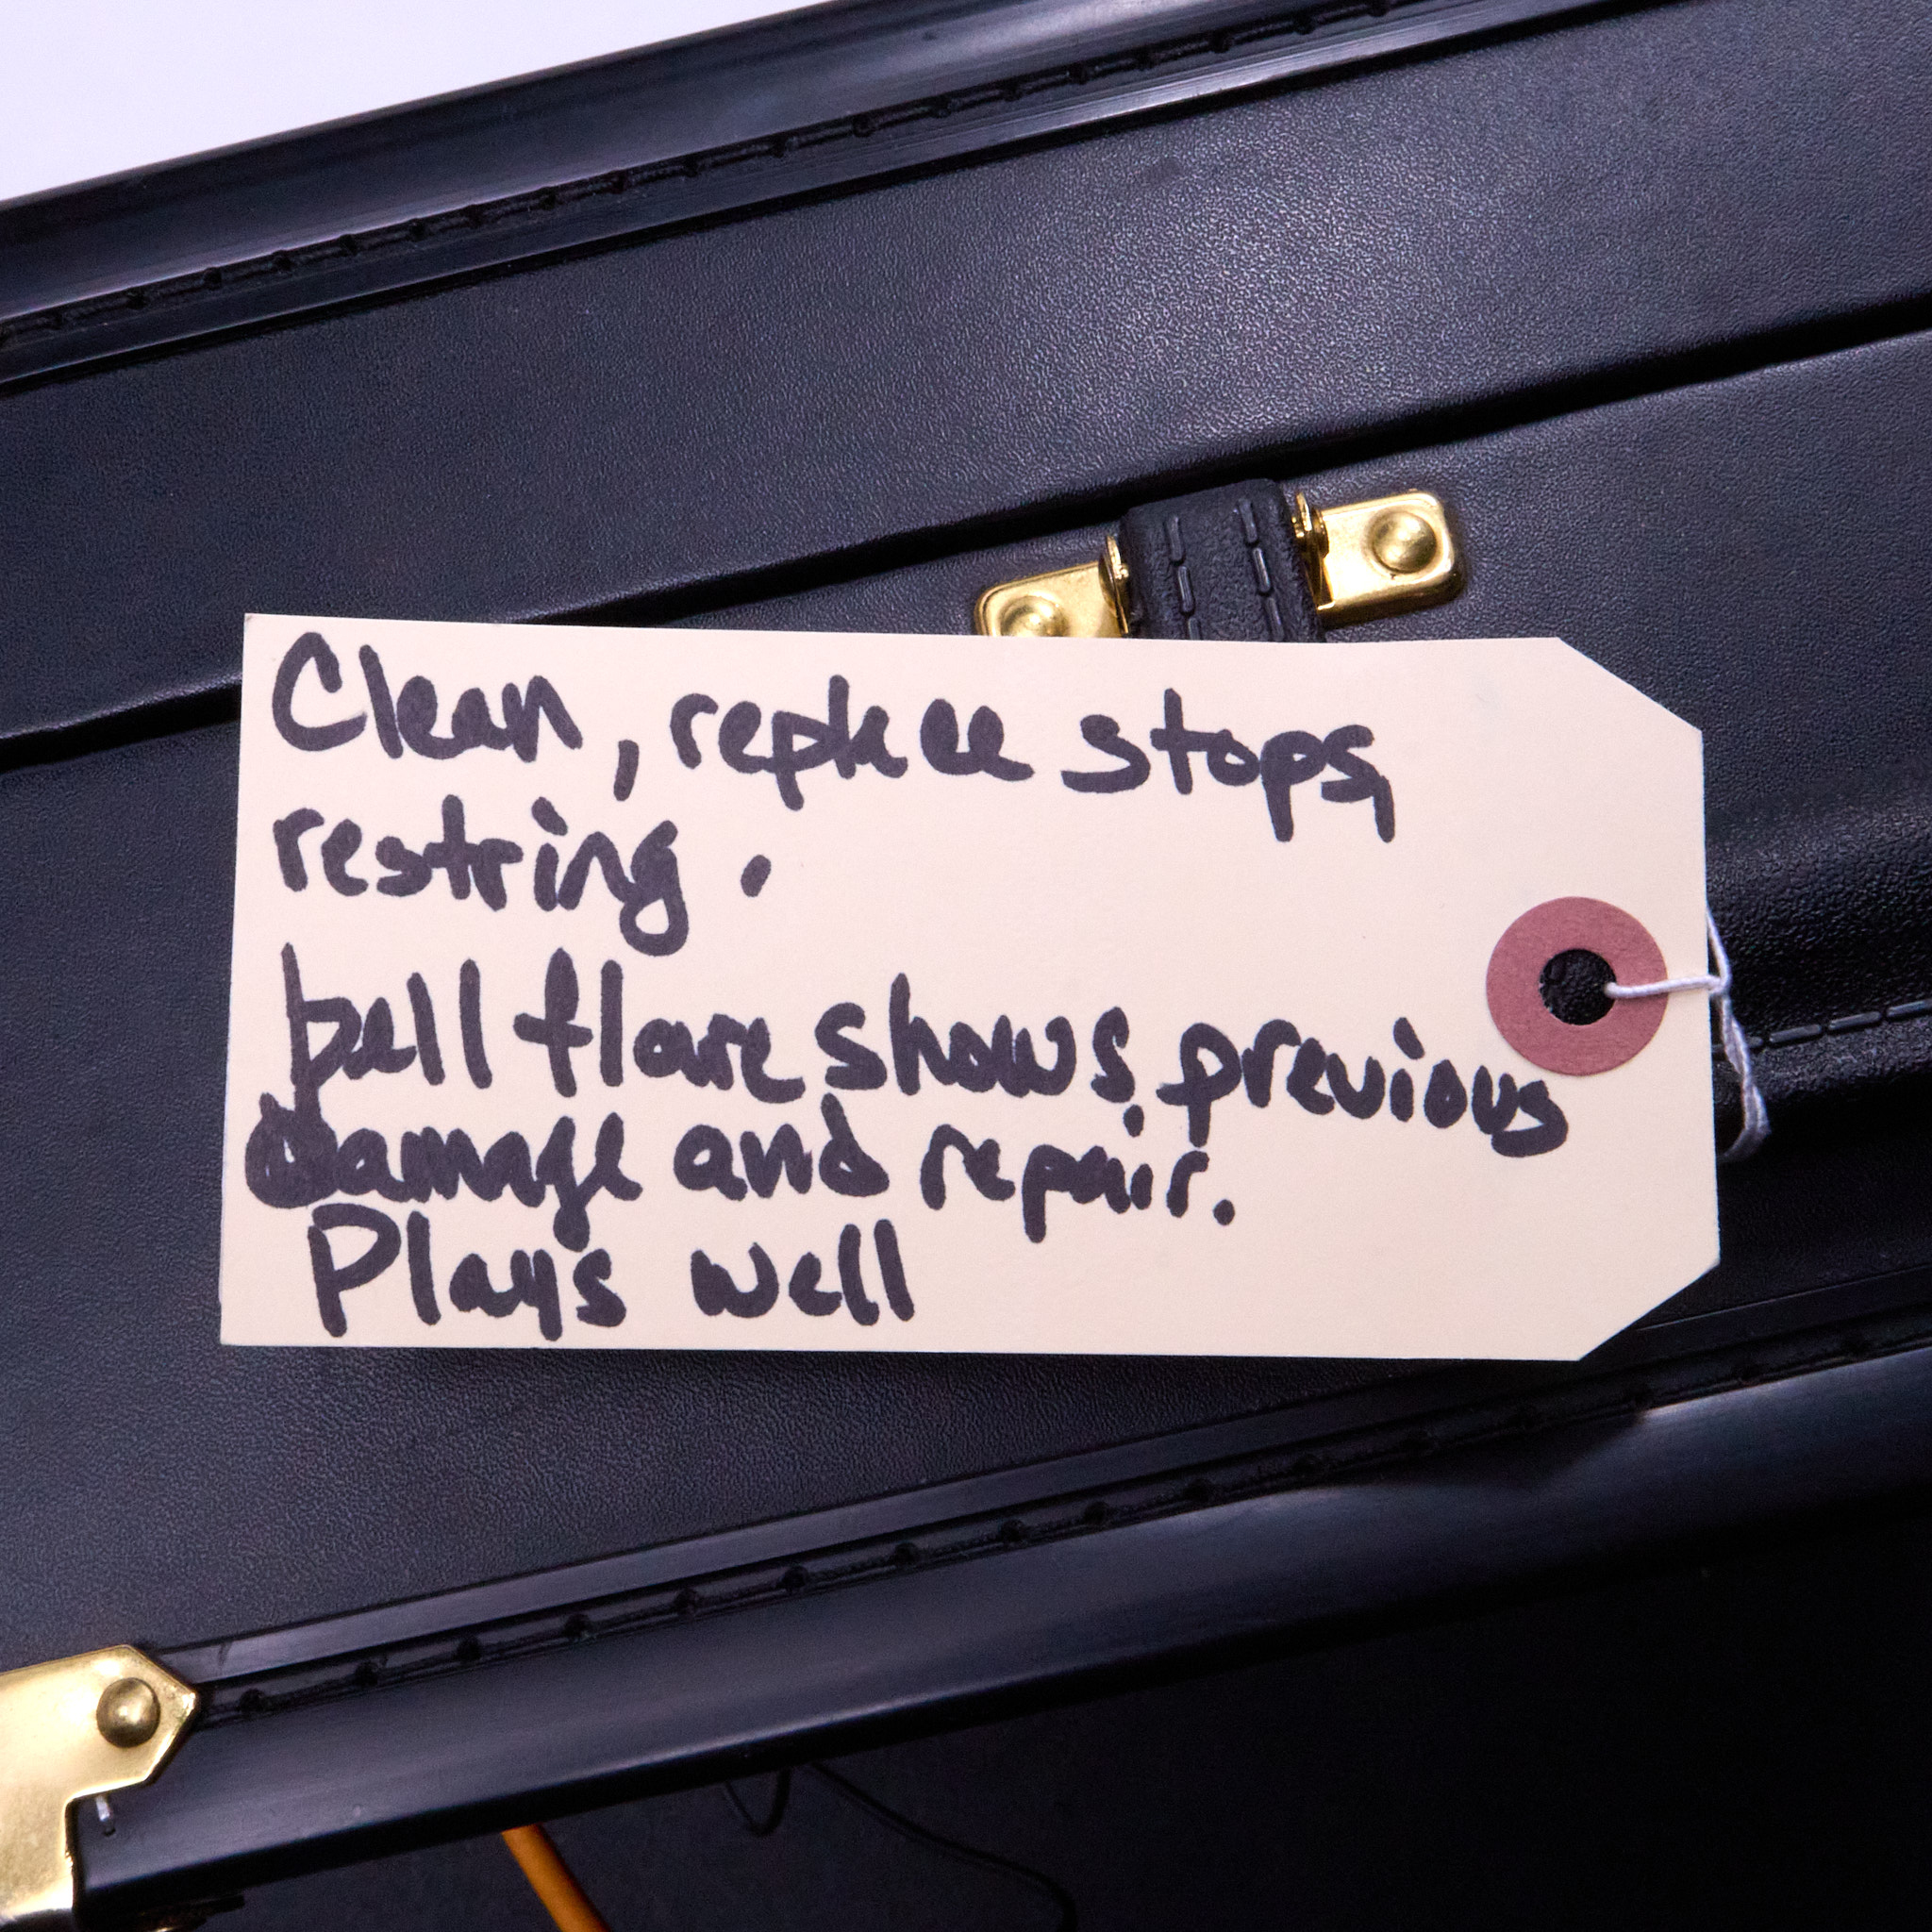 Clean, replace stops,
restring.
bell flare shows previous
damage and repair.
Plays well